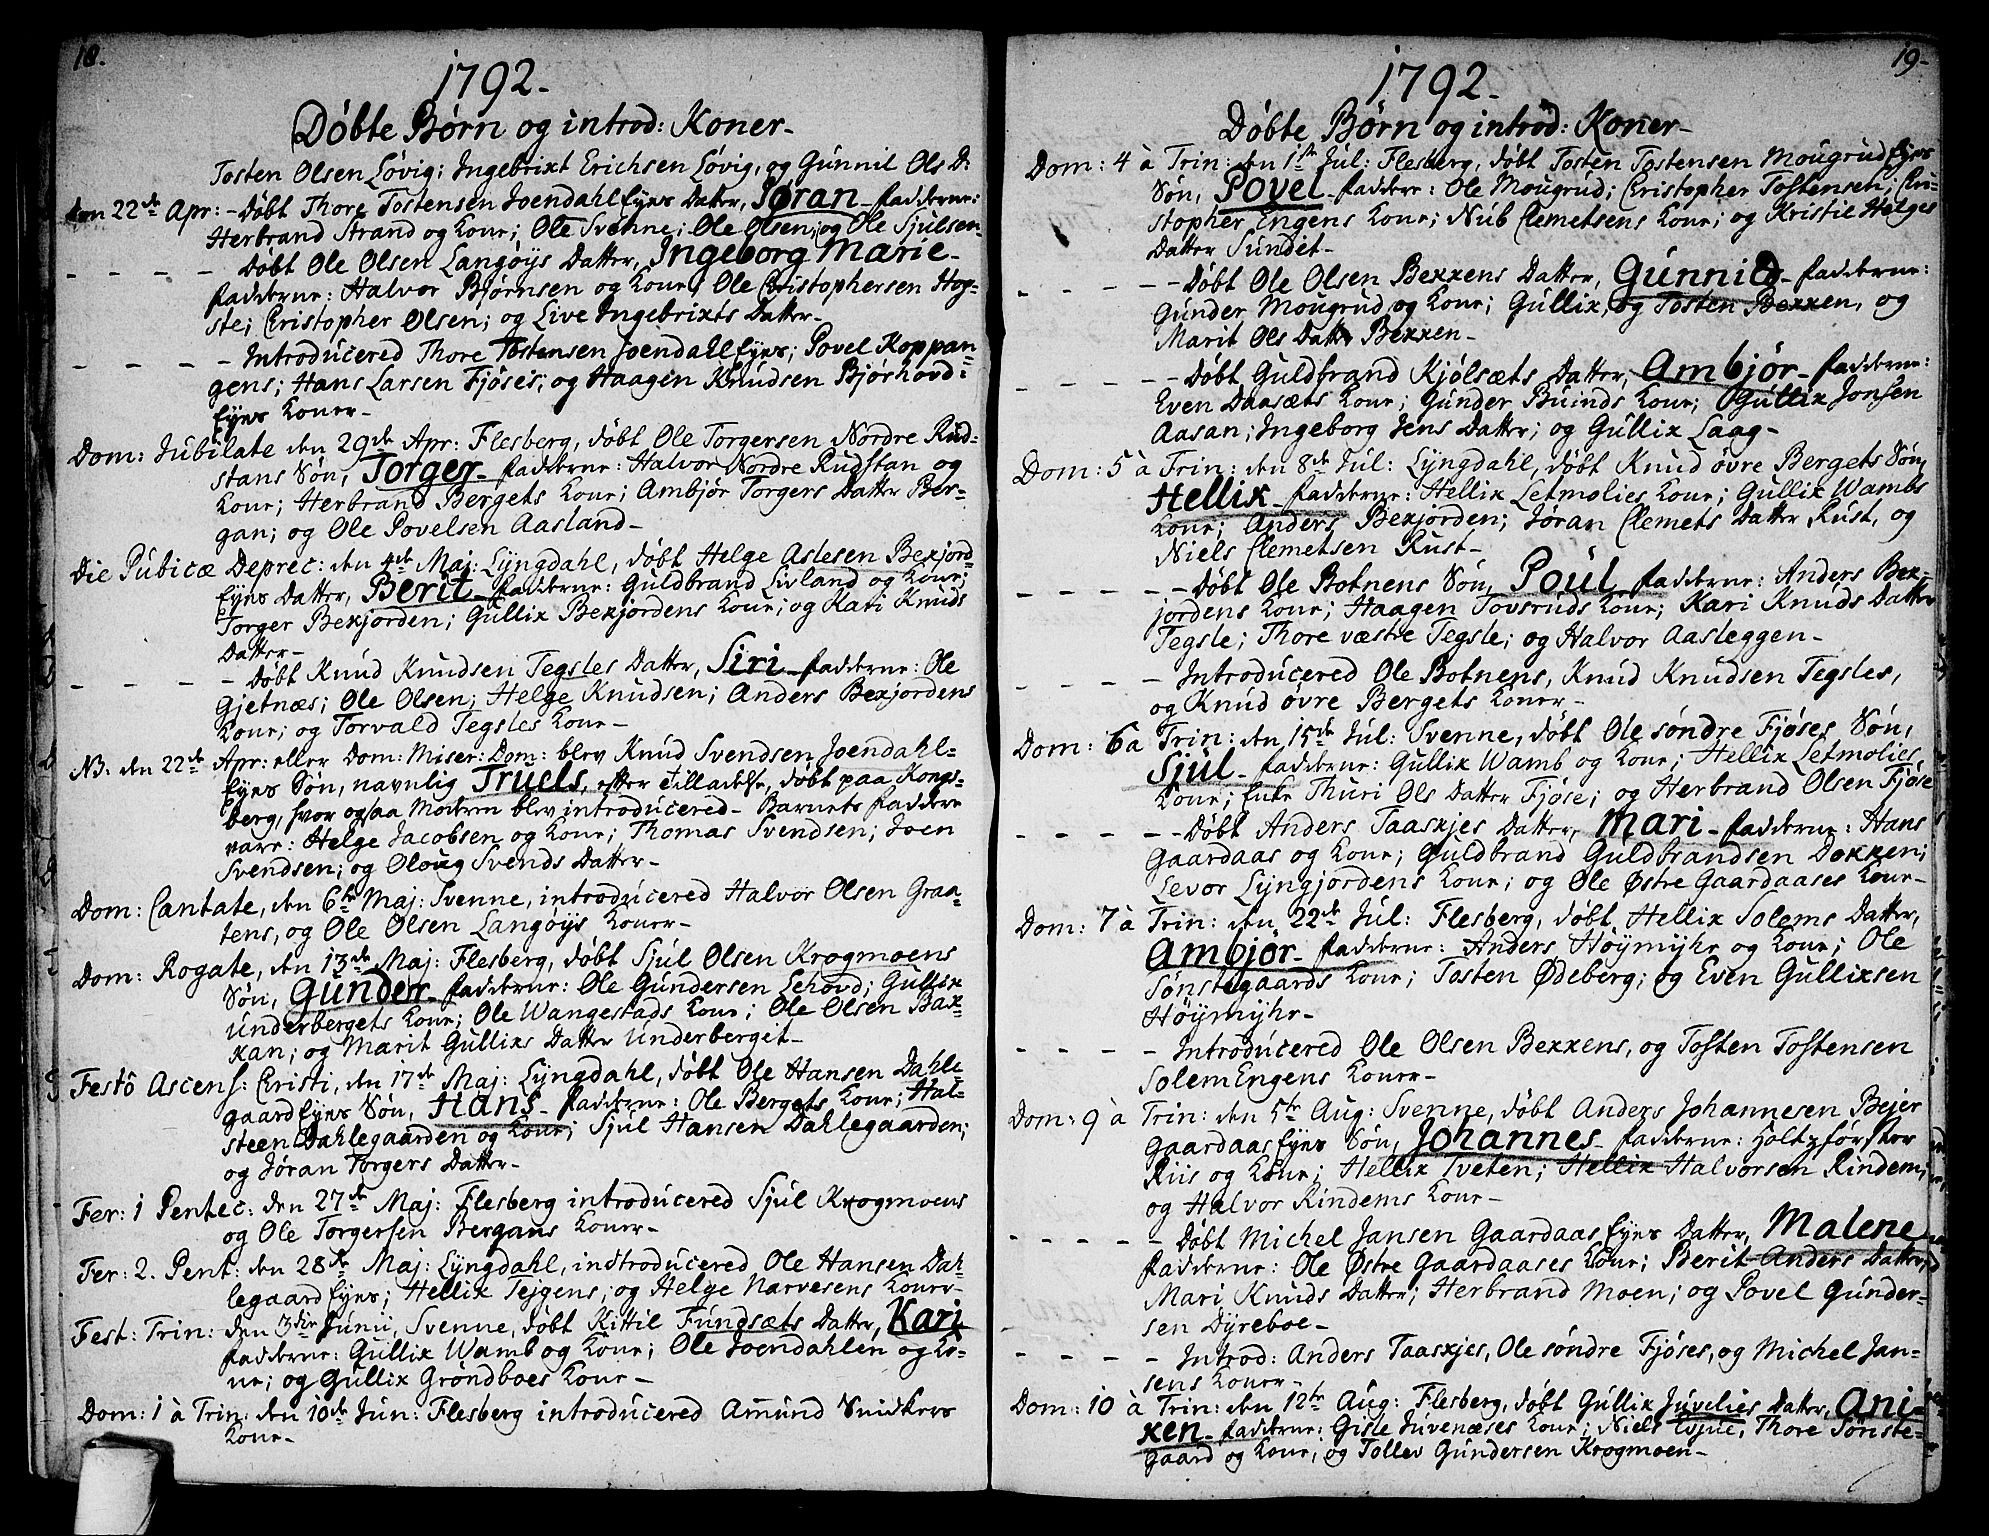 18.
1792.
Døbte Børn og introd: Koner.
Tosten Olsen Løvig; Ingebrixt Erichsen Løvig, og Gunnil Ols D:
den 22de Apr: - Døbt Thore Tostensen Joendahl Ejes Datter, Jøran. fadderne:
Herbrand Strand og Kone; Ole Svenne; Ole Olsen; og Ole Sjulsen.
- - - - Døbt Ole Olsen Langøys Datter, Ingeborg Marie.
fadderne: Halvor Bjørnsen og Kone; Ole Cristophersen Hog-
ste; Cristopher Olsen; og Live Ingebrixts Datter.
- - - - Introducered Thore Tostensen Joendahl Ejes; Povel Koppan-
gens; Hans Larsen Fjøses; og Haagen Knudsen Bjørhovd-
Ejes Koner.
Dom: Jubilate den 29de Apr: Flesberg, døbt Ole Torgersen Nordre Rud-
stans Søn, Torger. fadderne: Halvor Nordre Rudstan og
Kone; Herbrand Bergets Kone; Ambjør Torgers Datter Ber-
gan; og Ole Povelsen Aasland.
Die Pubicæ Deprec: den 4de Maj: Lyngdahl, døbt Helge Aslesen Bexjord-
Ejes Datter, Berit. fadderne: Guldbrand Livland og Kone;
Torger Bexjorden; Gullix Bexjordens Kone; og Kari Knuds
Datter.
- - - - Døbt Knud Knudsen Tegsles Datter, Siri. fadderne: Ole
Gjetnæs; Ole Olsen; Helge Knudsen; Anders Bexjordens
Kone; og Torvald Tegsles Kone.
NB: den 22de Apr: eller Dom: Miser: Dom: blev Knud Svendsen Joendahl-
Ejes Søn, navnlig Truels, efter Tilladelse, døbt paa Kongs-
berg, hvor ogsaa Moderen blev introducered. Barnets faddere
vare: Helge Jacobsen og Kone; Thomas Svendsen; Joen
Svendsen; og Oloug Svends Datter.
Dom: Cantate, den 6te Maj: Svenne, introducered Halvor Olsen Graa-
tens, og Ole Olsen Langøys Koner.
Dom: Rogate, den 13de Maj: Flesberg, døbt Sjul Olsen Krogmoens
Søn, Gunder. fadderne: Ole Gundersen Lehovd; Gullix
Underbergets Kone; Ole Wangestads Kone; Ole Olsen Bax-
kan; og Marit Gullixs Datter Underberget.
Festô Ascens: Cristi, den 17de Maj: Lyngdahl, døbt Ole Hansen Dahle-
gaard Ejes Søn, Hans. fadderne: Ole Bergets Kone; Hal-
steen Dahlegaarden og Kone; Sjul Hansen Dahlegaarden;
og Jøran Torgers Datter.
Fer: 1 Pentec: den 27de Maj: Flesberg introducered Sjul Krogmoens
og Ole Torgersen Bergans Koner.
Fer: 2. Pent: den 28de Maj: Lyngdahl, indtroducered Ole Hansen Dah-
legaard Ejes; Hellix Tejgens; og Helge Narvesens Koner.
Fest: Trin: den 3die Junii, Svenne, døbt Kittil Fundsæts Datter, Kari
fadderne: Gullix Wamb og Kone; Ole Joendahlen og Ko-
ne; og Gullix Grøndboes Kone.
Dom: 1 à Trin: den 10de Jun: Flesberg introducered Amund Snidkers
Kone.
19.
1792.
Døbte Børn og introd: Koner.
Dom: 4 à Trin: den 1ste Jul: Flesberg, døbt Tosten Tostensen Mougrud Ejes
Søn, Povel. faddere: Ole Mougrud; Cristopher Tostensen; Cri-
stopher Engens Kone; Nub Clemetsens Kone; og Kristie Helges
Datter Sundet.
- - - - Døbt Ole Olsen Bexxens Datter, Gunnild. fadderne:
Gunder Mougrud og Kone; Gullix, og Tosten Bexxen, og
Marit Ols Datter Bexxen.
- - - - Døbt Guldbrand Kjølsæts Datter, Ambjør. fadderne:
Even Daasæts Kone; Gunder Buinds Kone; Gullix Jonsen
Aasan; Ingeborg Jens Datter; og Gullix Laag.
Dom: 5 à Trin: den 8de Jul: Lyngdahl, døbt Knud øvre Bergets Søn,
Hellix. fadderne: Hellix Letmolies Kone; Gullix Wambs
Kone; Anders Bexjorden; Jøran Clemets Datter Rust, og
Niels Clemetsen Rust.
- - - - Døbt Ole Botnens Søn, Poul. fadderne: Anders Bex-
jordens Kone; Haagen Tovsruds Kone; Kari Knuds Datter
Tegsle; Thore væstre Tegsle; og Halvor Aasleggen.
- - - - Introducered Ole Botnens, Knud Knudsen Tegsles,
og Knud øvre Bergets Koner.
Dom: 6 à Trin: den 15de Jul: Svenne, døbt Ole søndre Fjøses Søn,
Sjul. fadderne: Gullix Wamb og Kone; Hellix Letmolies
Kone; Enke Thuri Ols Datter Fjøse; og Herbrand Olsen Fjøse
- - - - Døbt Anders Taasxjes Datter, Mari. fadderne: Hans
Gaardaas og Kone; Guldbrand Guldbrandsen Doxxen;
Levor Lyngjordens Kone; og Ole Østre Gaardaases Kone.
Dom: 7 à Trin: den 22de Jul: Flesberg, døbt Hellix Solems Datter,
Ambjør. fadderne: Anders Høymyhr og Kone; Ole
Sønstegaards Kone; Tosten Ødeberg; og Even Gullixsen
Høymyhr.
- - - - Introducered Ole Olsen Bexxens, og Tosten Tostensen
Solem Engens Koner.
Dom: 9 à Trin: den 5te Aug: Svenne, døbt Anders Johannesen Bejer
Gaardaas Ejes Søn, Johannes. fadderne: Holtzførster
Riis og Kone; Hellix Tveten; Hellix Halvorsen Rindem;
og Halvor Rindems Kone.
- - - - Døbt Michel Jansen Gaardaas Ejes Datter, Malene
fadderne: Ole Østre Gaardaases Kone; Berit Anders Datter;
Mari Knuds Datter; Herbrand Moen; og Povel Gunder-
sen Dyreboe.
- - - - Introd: Anders Taasxjes, Ole søndre Fjøses, og Michel Jan-
sens Koner.
Dom: 10 à Trin: den 12te Aug: Flesberg, døbt Gullix Juvelies Datter, Ani-
xen. fadderne: Gisle Juvenæses Kone; Niels Evjue; Thore Sønste-
gaard og Kone; og Tollev Gundersen Krogmoen.